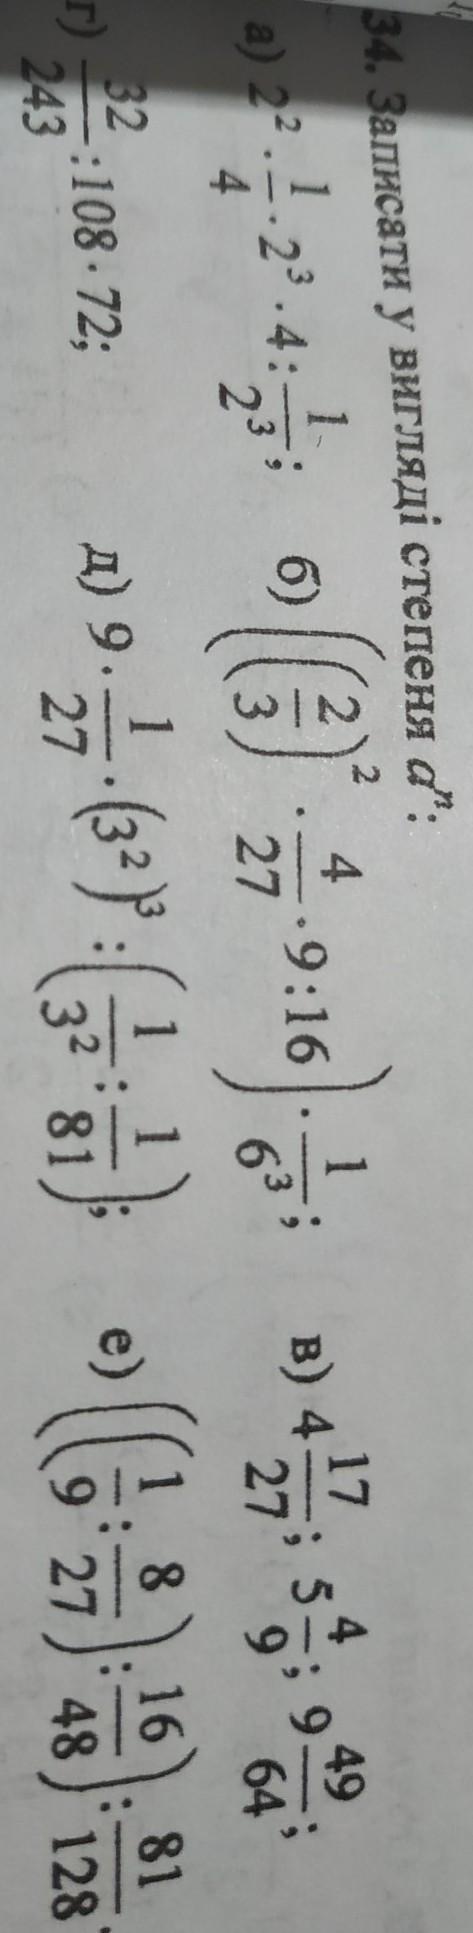 34. Записати у вигляді степеня aⁿ:
а) 2² · 1/4 · 2³ · 4 : 1/2³; б) ((2/3)² · 4/27 · 9 : 16) · 1/6³; в) 4 17/27; 5 4/9; 9 49/64;
г) 32/243 : 108 · 72; д) 9 · 1/27 · (3²)³ : (1/3² : 1/81); е) ((1/9 : 8/27) : 16/48) : 81/128.